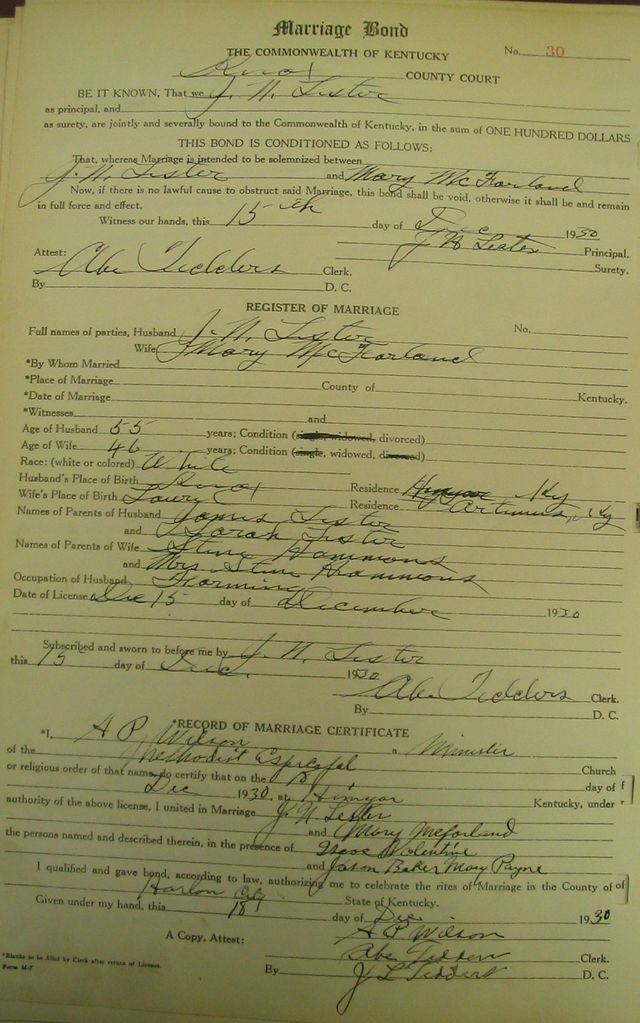 Marriage Bond
THE COMMONWEALTH OF KENTUCKY No. 30
Knox COUNTY COURT
BE IT KNOWN, That we J. N. Lester
as principal, and
as surety, are jointly and severally bound to the Commonwealth of Kentucky, in the sum of ONE HUNDRED DOLLARS
THIS BOND IS CONDITIONED AS FOLLOWS:
That, whereas Marriage is intended to be solemnized between
J. N. Lester and Mary McFarland
Now, if there is no lawful cause to obstruct said Marriage, this bond shall be void, otherwise it shall be and remain
in full force and effect.
Witness our hands, this 15th day of Dec 1930
J N Lester Principal.
Surety.
Attest:
Abe Tedders Clerk.
By D. C.
REGISTER OF MARRIAGE
Full names of parties, Husband J. N. Lester No.
Wife Mary McFarland
*By Whom Married
*Place of Marriage County of Kentucky.
*Date of Marriage
*Witnesses and
Age of Husband 55 years; Condition (single, widowed, divorced)
Age of Wife 46 years; Condition (single, widowed, divorced)
Race: (white or colored) White
Husband's Place of Birth Knox Residence Himyar Ky
Wife's Place of Birth Residence Artimus, Ky
Names of Parents of Husband James Lester
and Sarah Lester
Names of Parents of Wife Steve Hammons
and Mrs Steve Hammons
Occupation of Husband Farming
Date of License Dec 15 day of December 1930
Subscribed and sworn to before me by J. N. Lester
this 15 day of Dec. 1930
Abe Tedders Clerk.
By D. C.
*RECORD OF MARRIAGE CERTIFICATE
*I, A P Wilson a Minister
of the Methodist Church
or religious order of that name, do certify that on the 18 day of
Dec 1930, at Himyar Kentucky, under
authority of the above license, I united in Marriage J. N. Lester
and Mary McFarland
the persons named and described therein, in the presence of Valentine
and Jason Baker Mary Payne
I qualified and gave bond, according to law, authorizing me to celebrate the rites of Marriage in the County of
Harlan City State of Kentucky.
Given under my hand, this 18 day of Dec 1930
A P Wilson
A Copy, Attest: Abe Tedders Clerk.
By J L Tedders D. C.
*Blanks to be filled by Clerk after return of License.
Form M-7